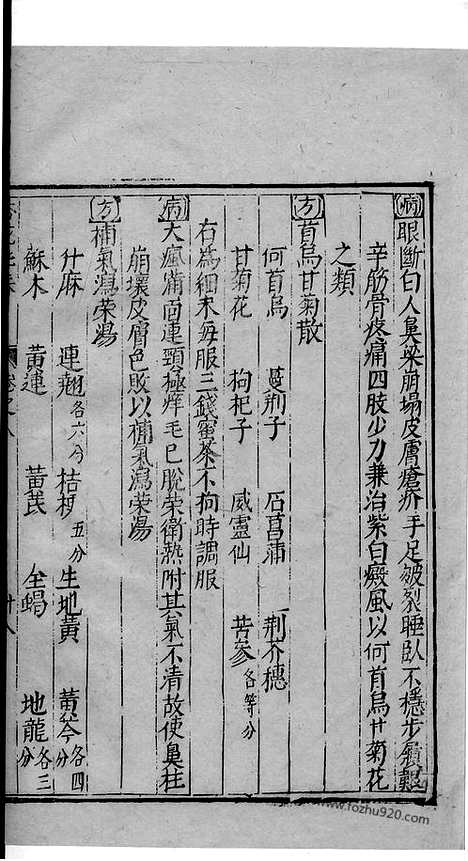 病 眼斷白人鼻梁崩塌皮膚瘡疥手足皴裂睡臥不穩步履艱
辛筋骨疼痛四肢少力兼治紫白癜風以何首烏甘菊花
之類
方 首烏甘菊散
何首烏 蔓荆子 石菖蒲 荆芥穗
甘菊花 枸杞子 威靈仙 苦參各等分
右為細末每服三錢蜜茶不拘時調服
病 大瘋滿面連頸極痒毛已脫荣衛熱附其氣不清故使鼻柱
崩壞皮膚色敗以補氣瀉荣湯
方 補氣瀉荣湯
什麻 連翹各六分 桔梗五分 生地黃 黃芩各四分
蘇木 黃連 黃芪 全蝎 地龍各三分
卷之八
十八
www.fozhu920.com